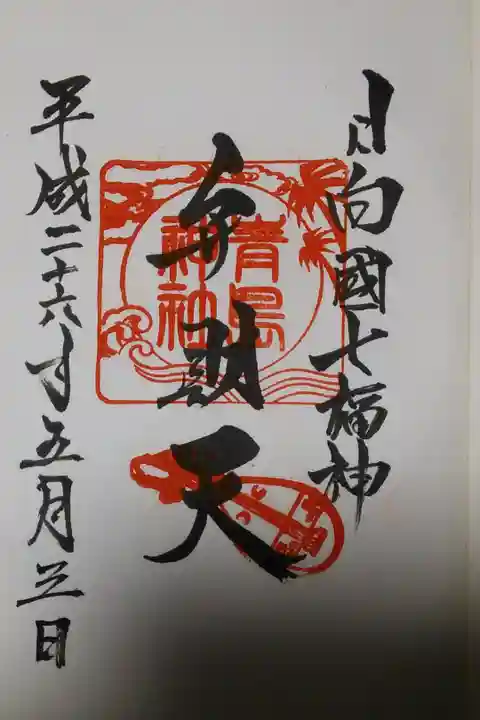 日向國七福神
青島
神社
弁財天
平成二十六年五月三日